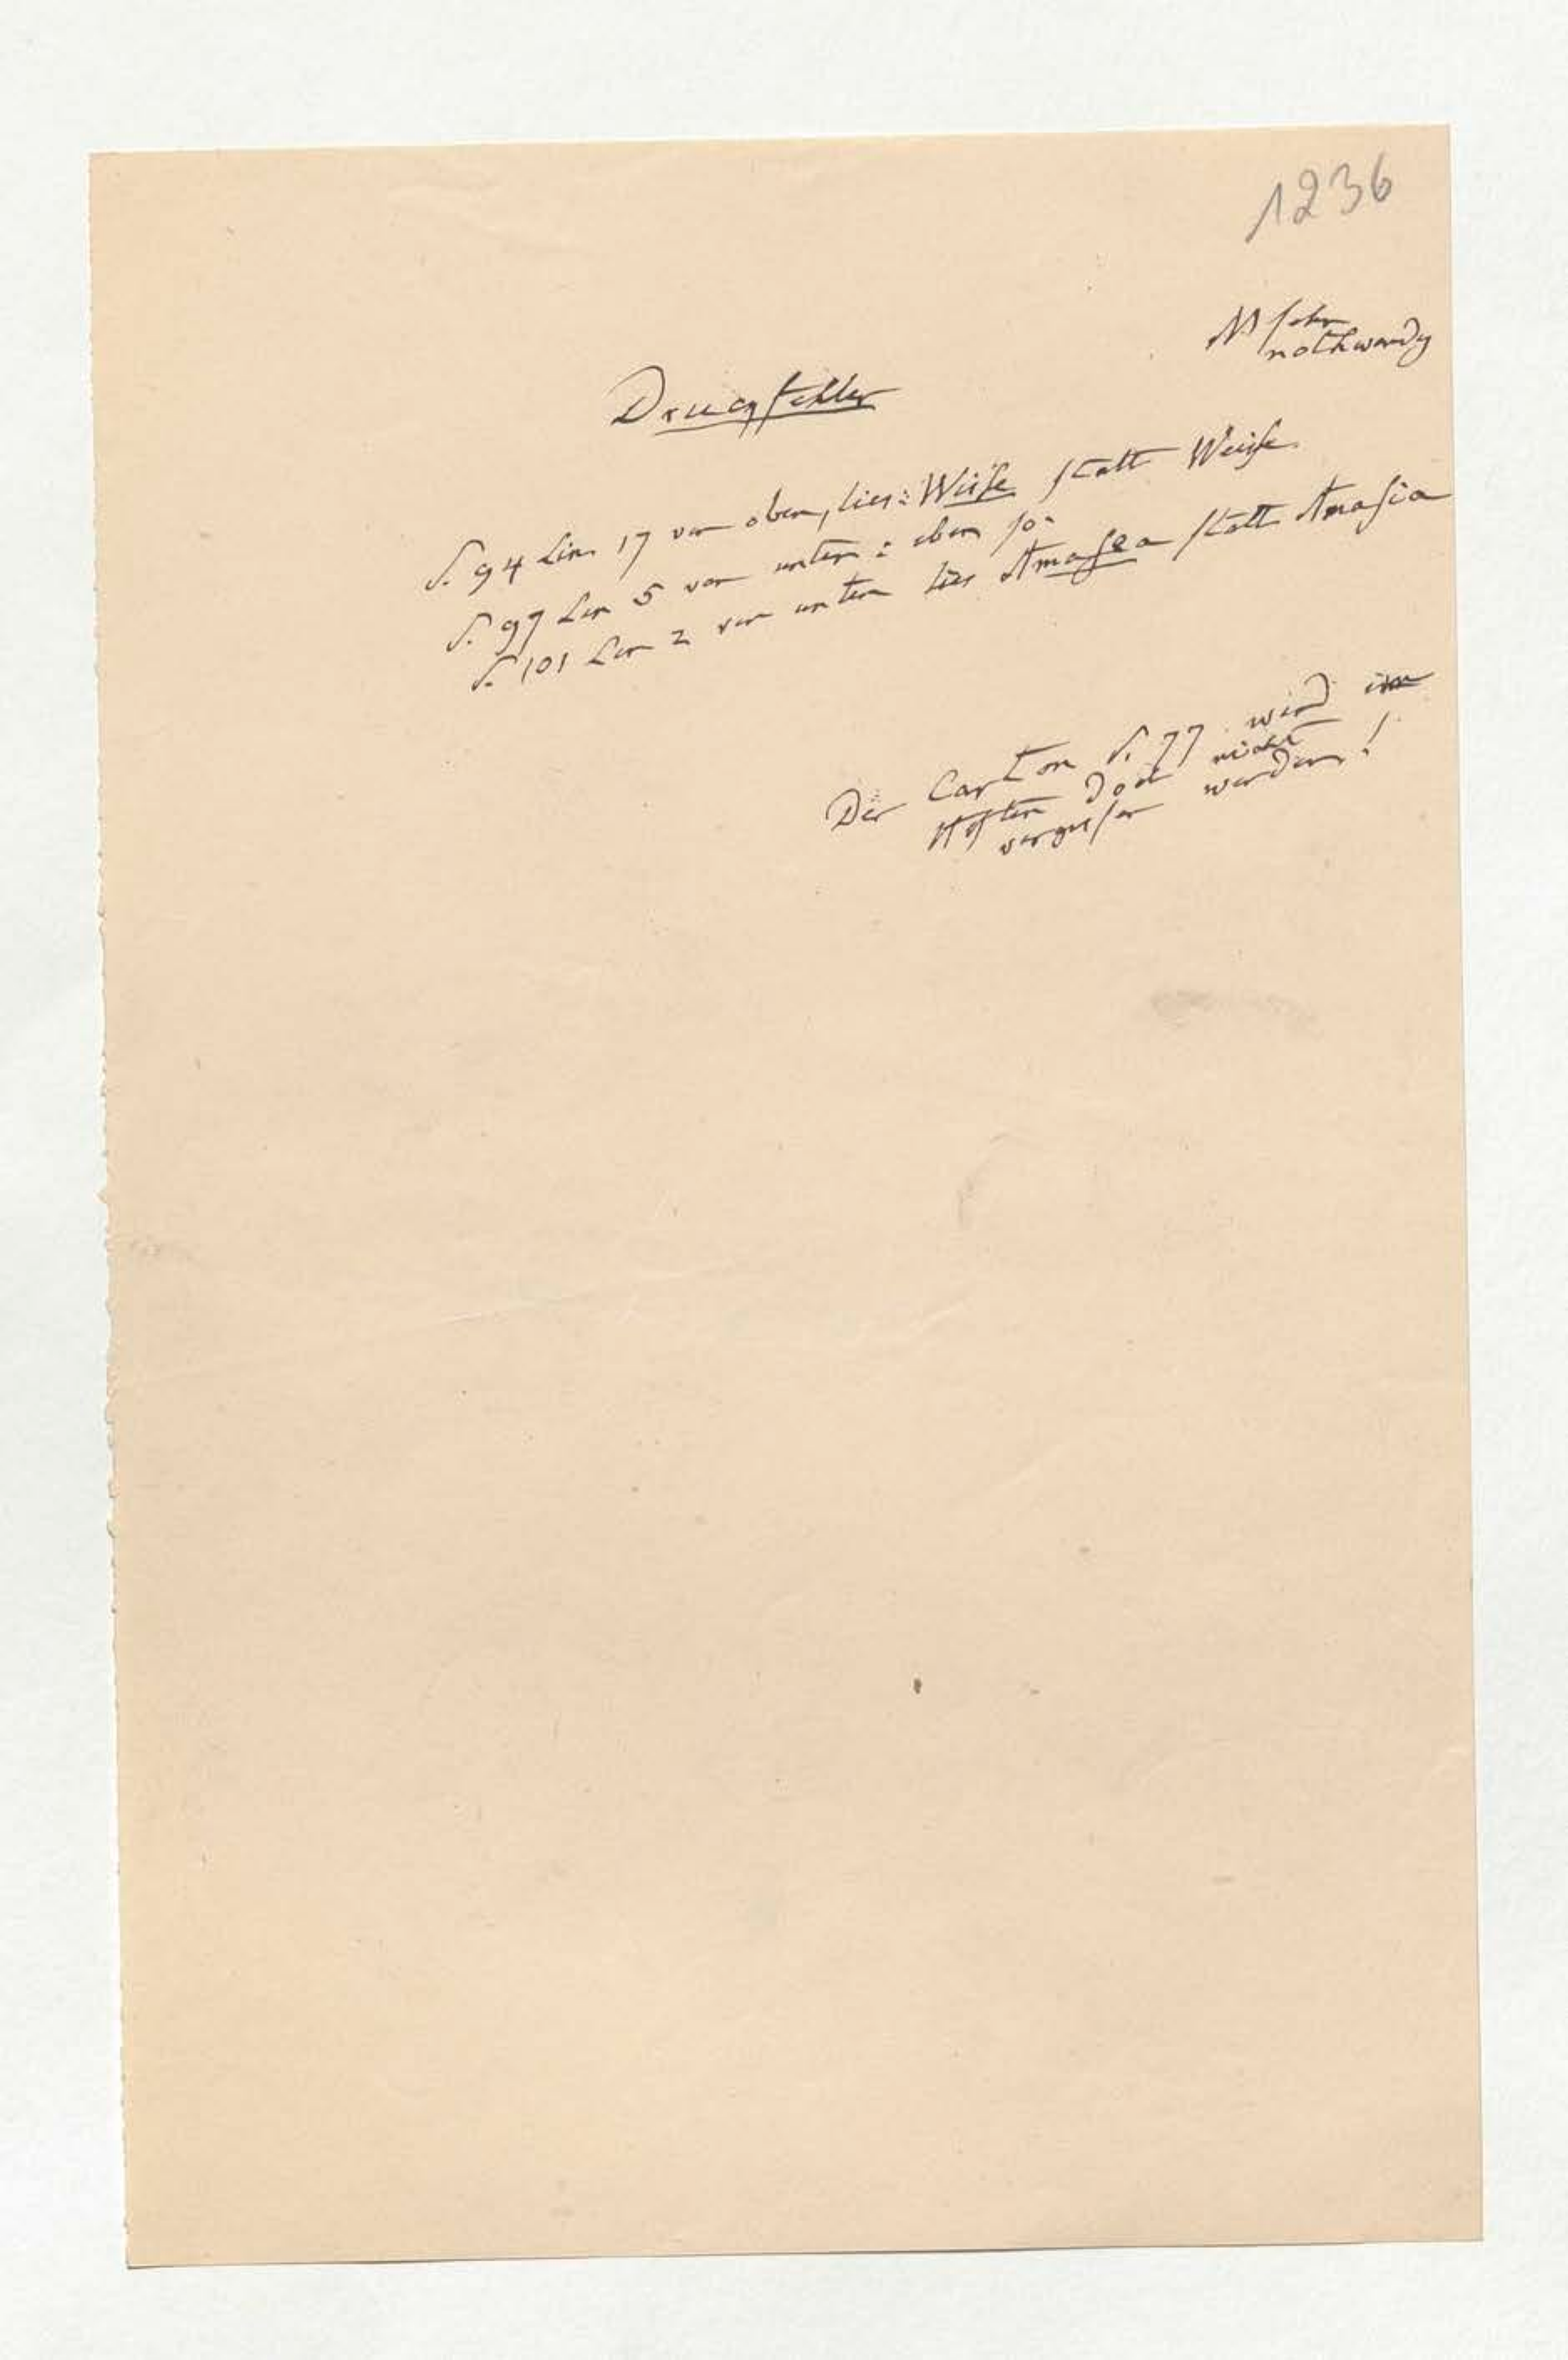 1236
NB sehr
nothwendig
Druckfehler
S. 94 Lin. 17 von oben, lies: Wüste statt Weise.
S. 97 Lin 5 von unten: eben so.
S. 101 Lin 2 von unten lies Amasea statt Amasia
Der Carton S. 77 wird im
2ten doch nicht
vergessen werden!